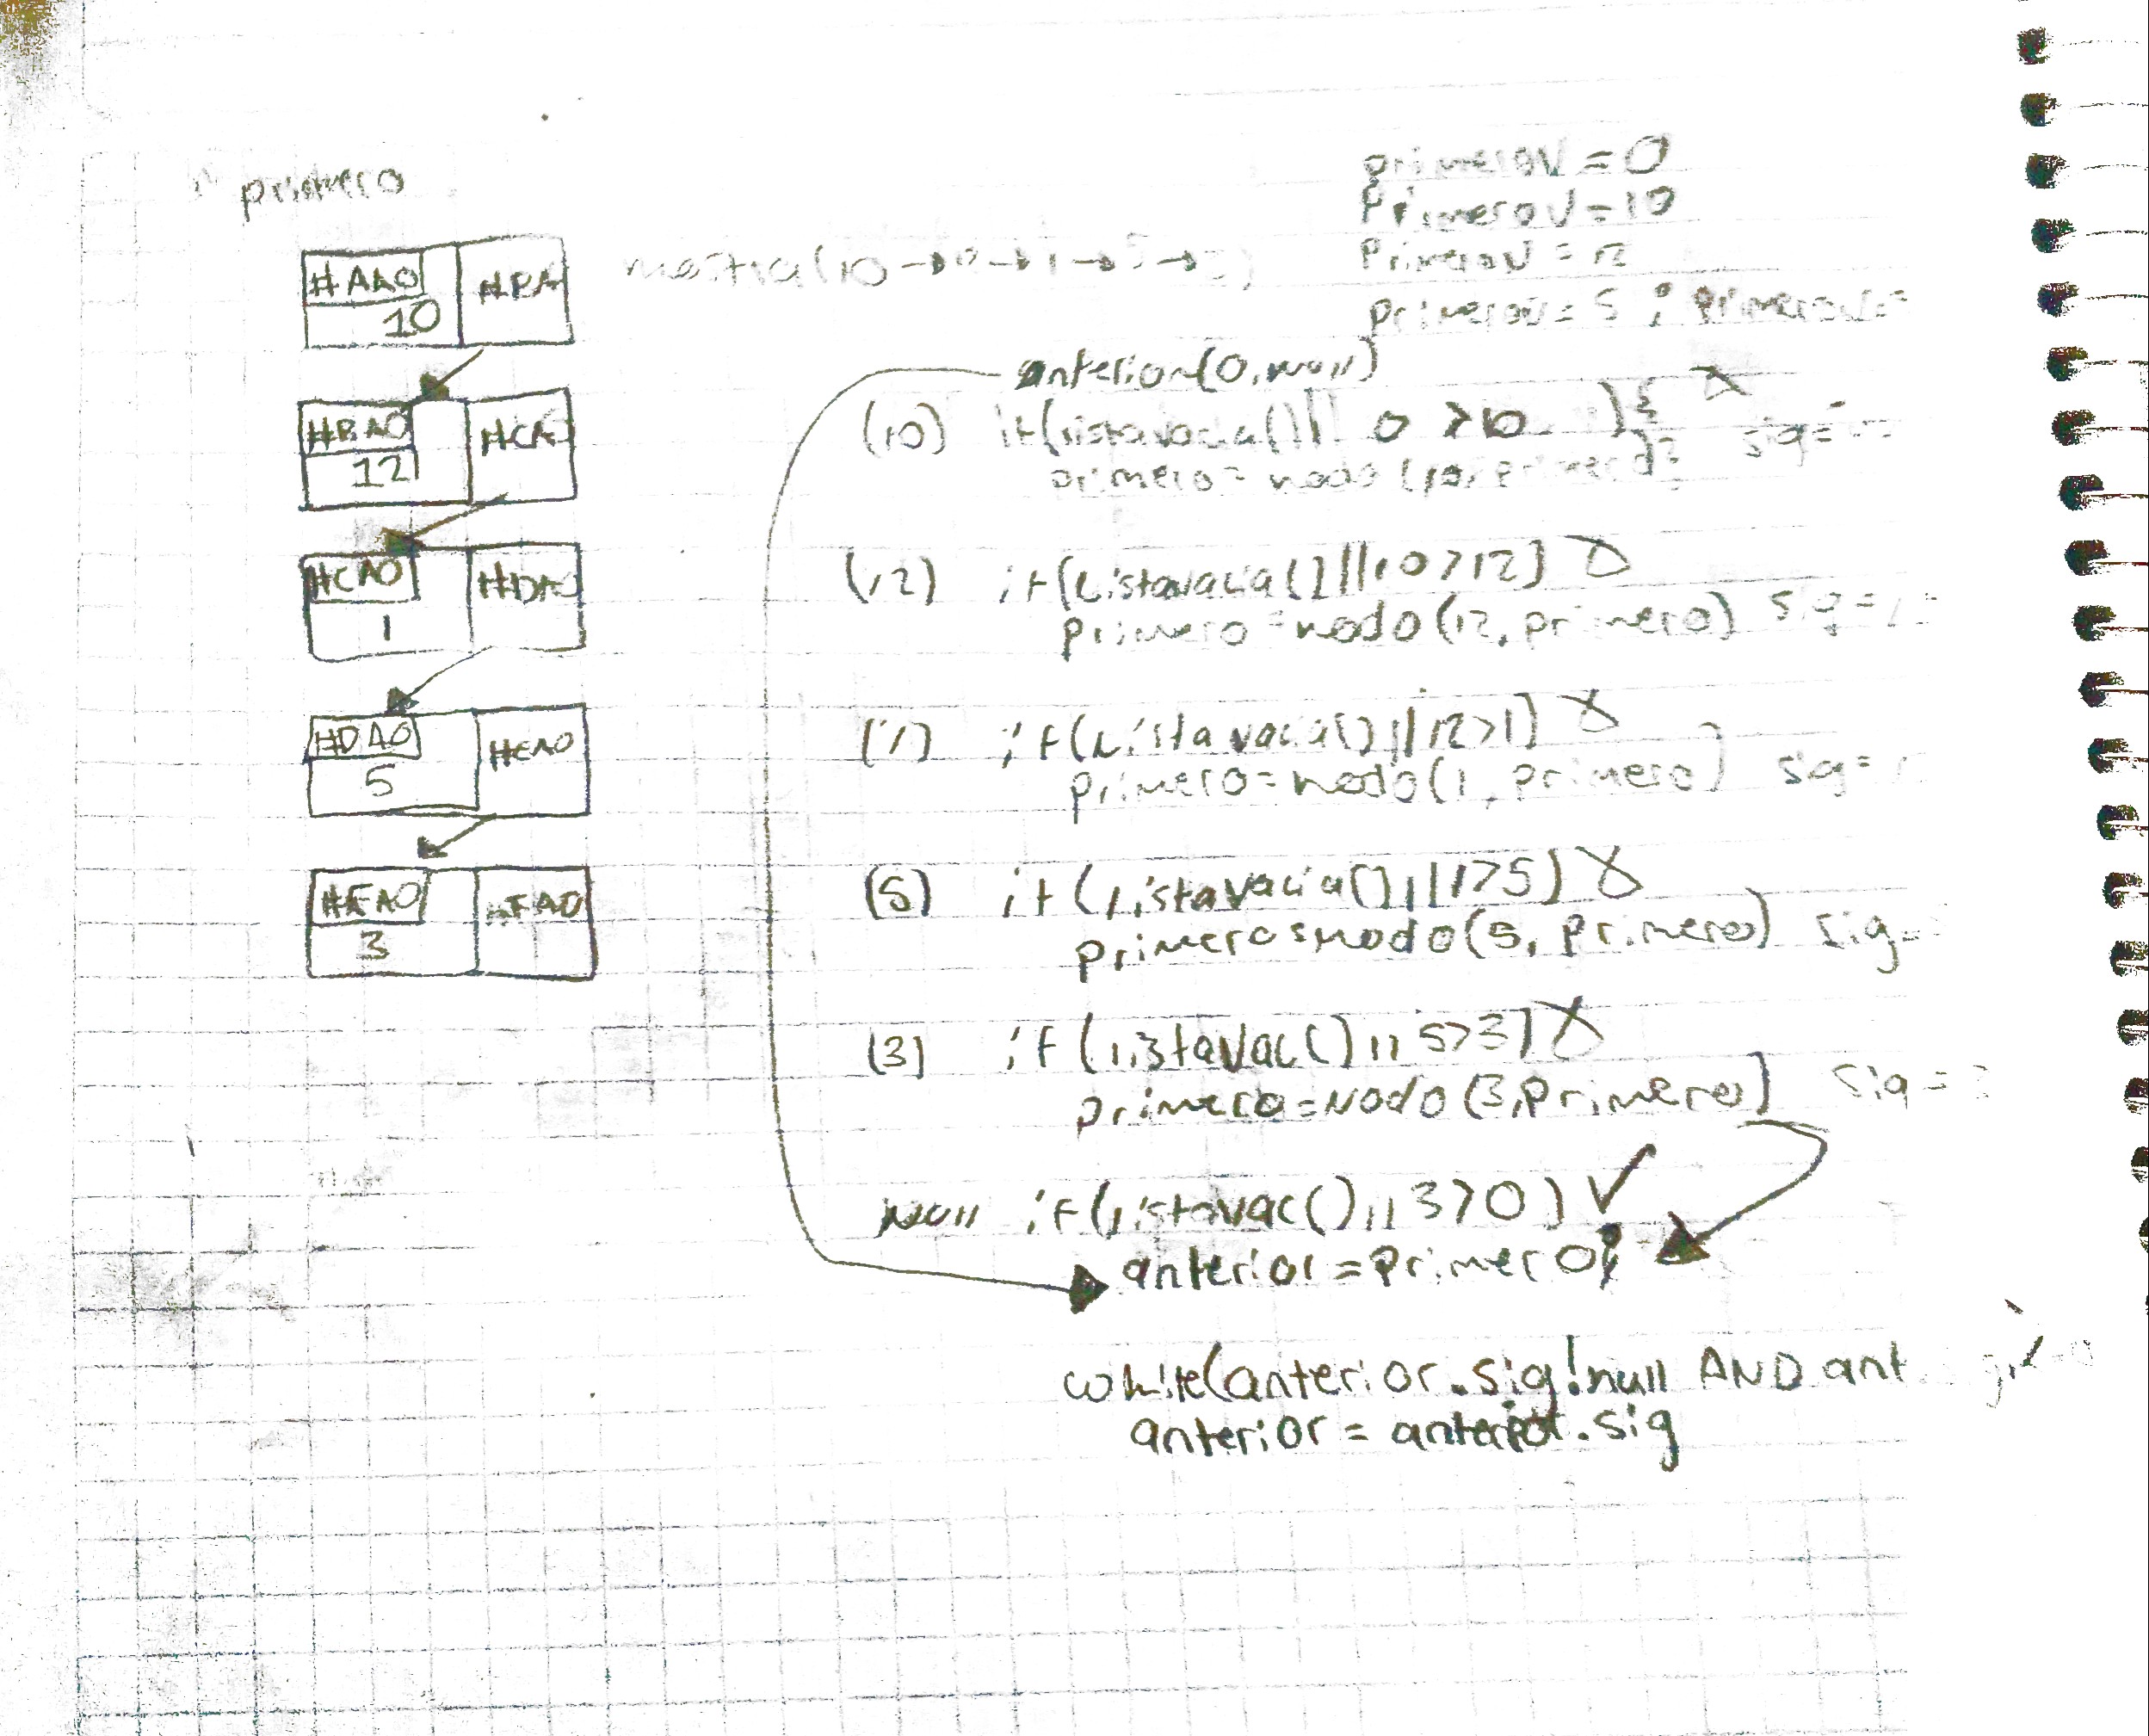 primero
#AA0
10
#BA
#BA0
12
#CA
#CA0
1
#DA0
#DA0
5
#EA0
#EA0
3
#FA0
primeroV = 0
PrimeroV = 10
PrimeroV = 12
primeroV = 5 ; Primero
anterior(0, null)
(10) if(listavacia() || 0 > 10 ) {
primero = nodo (10, primero);
sig =
(12) if(listavacia() || 10 > 12)
primero = nodo (12, primero) sig =
(1) if(listavacia() || 12 > 1)
primero = nodo (1, primero) sig =
(5) if (listavacia() || 1 > 5)
primero = nodo (5, primero) sig =
(3) if (listavac() || 5 > 3)
primero = Nodo (3, Primero) sig =
Null if(listavac() || 3 > 0) ✓
anterior = primero;
while(anterior.sig!null AND ant
anterior = anterior.sig